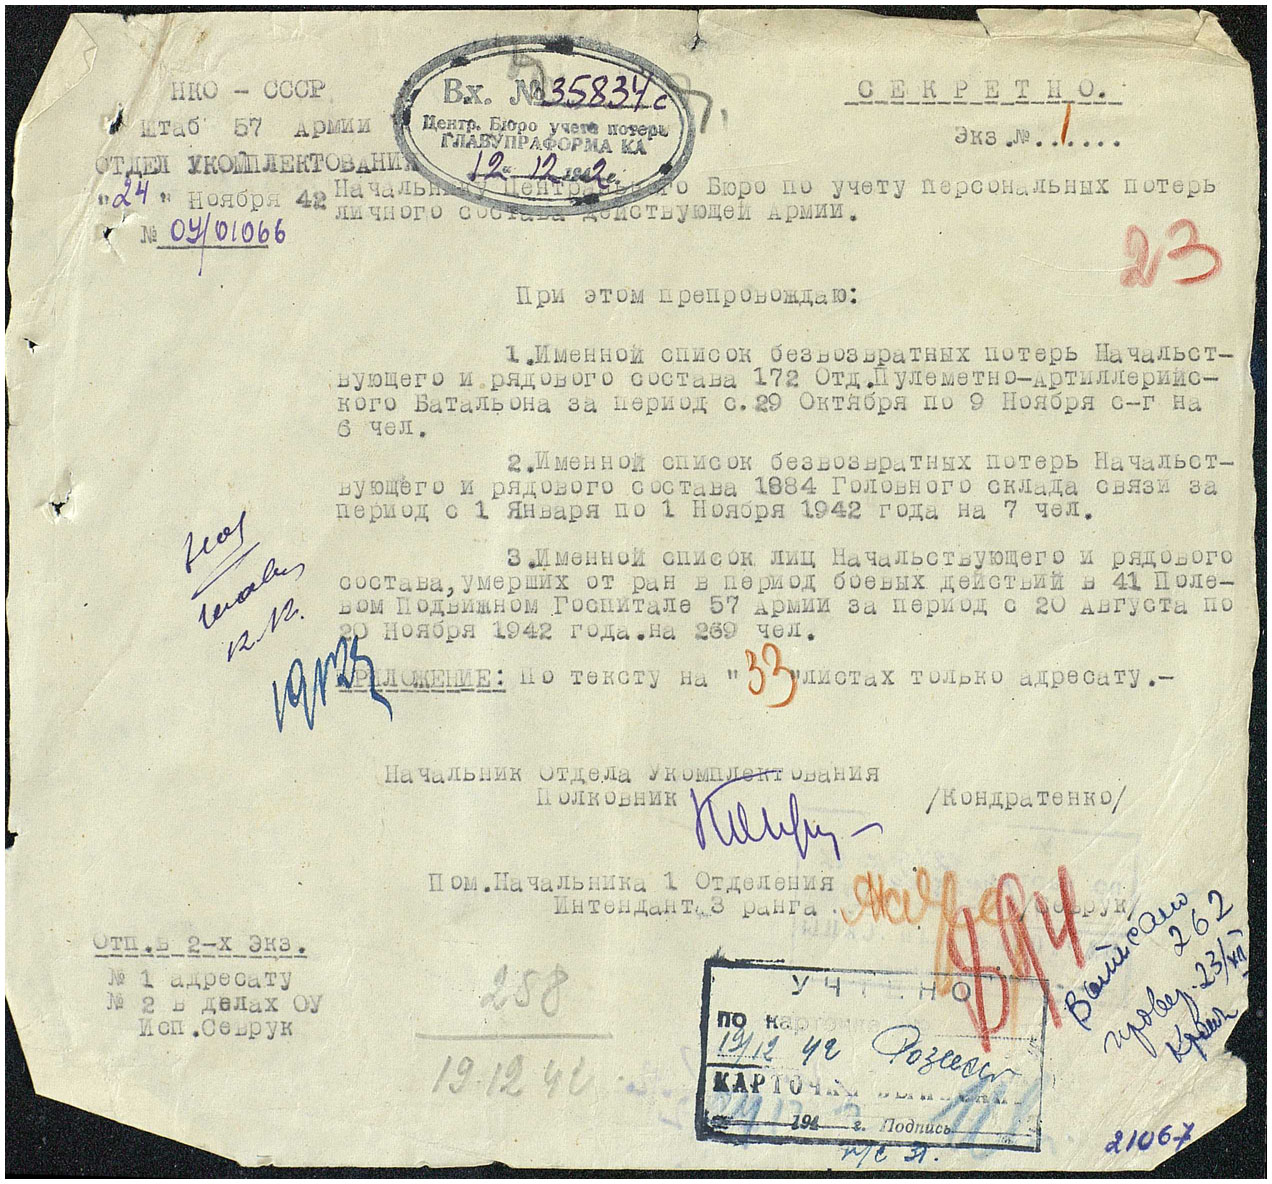 НКО - СССР
Штаб 57 Армии
ОТДЕЛ УКОМПЛЕКТОВАНИЯ
"24" Ноября 42
№ ОУ/01066
Вх. № 35834с
Центр. Бюро учета потерь
ГЛАВУПРАФОРМА КА
"12" 12 1942 г.
СЕКРЕТНО.
Экз.№ ..1....
Начальнику Центрального Бюро по учету персональных потерь
личного состава действующей Армии.
23
При этом препровождаю:
1.Именной список безвозвратных потерь Начальст-
вующего и рядового состава 172 Отд.Пулеметно-Артиллерийс-
кого Батальона за период с.29 Октября по 9 Ноября с-г на
6 чел.
2.Именной список безвозвратных потерь Начальст-
вующего и рядового состава 1884 Головного склада связи за
период с 1 Января по 1 Ноября 1942 года на 7 чел.
3.Именной список лиц Начальствующего и рядового
состава,умерших от ран в период боевых действий в 41 Поле-
вом Подвижном Госпитале 57 Армии за период с 20 Августа по
20 Ноября 1942 года.на 269 чел.
ПРИЛОЖЕНИЕ: По тексту на "33"листах только адресату.-
Начальник Отдела Укомплектования
Полковник /Кондратенко/
Пом.Начальника 1 Отделения
Интендант 3 ранга /Севрук/
894
Отп.в 2-х Экз.
№ 1 адресату
№ 2 в делах ОУ
Исп.Севрук
258
19.12.42
УЧТЕНО
по карточкам
19/12 42
КАРТОЧКИ
194 г. Подпись
Выписано
262
провер. 23/XII
21067